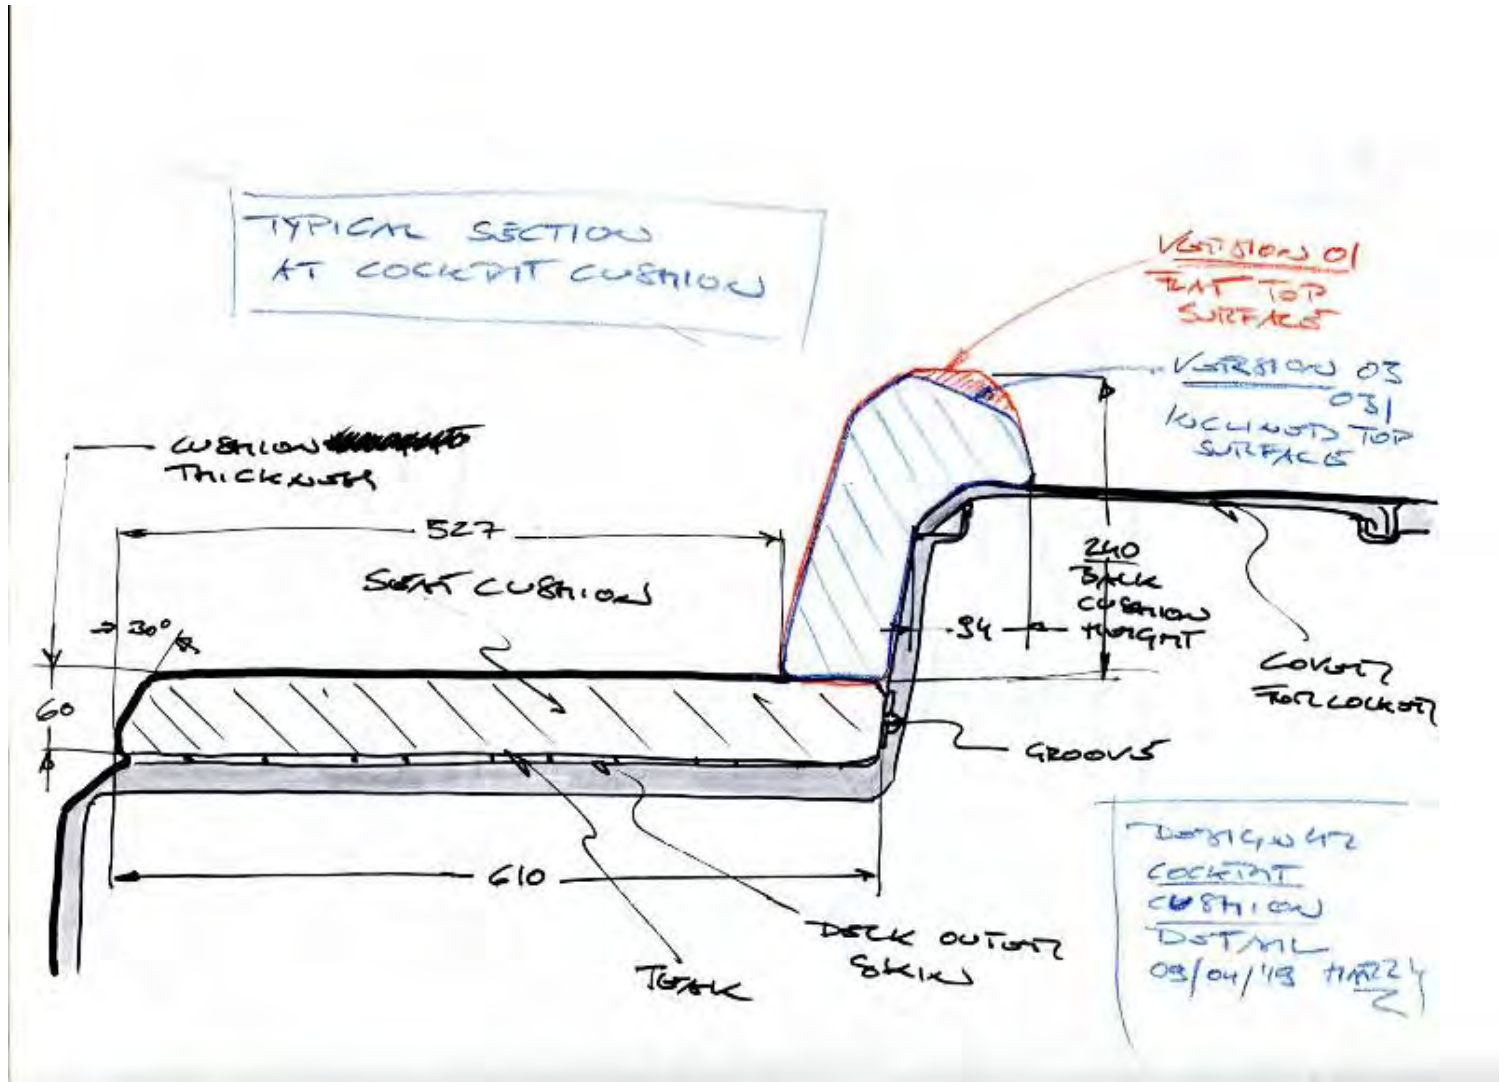 TYPICAL SECTION
AT COCKPIT CUSHION
VERSION 01
FLAT TOP
SURFACE
VERSION 03
031
INCLINED TOP
SURFACE
CUSHION
THICKNESS
527
SEAT CUSHION
30°
60
240
BACK
CUSHION
HEIGHT
94
COVER
FOR LOCKER
GROOVE
610
DECK OUTER
SKIN
TEAK
DESIGNER
COCKPIT
CUSHION
DETAIL
09/04/'19 HARRY